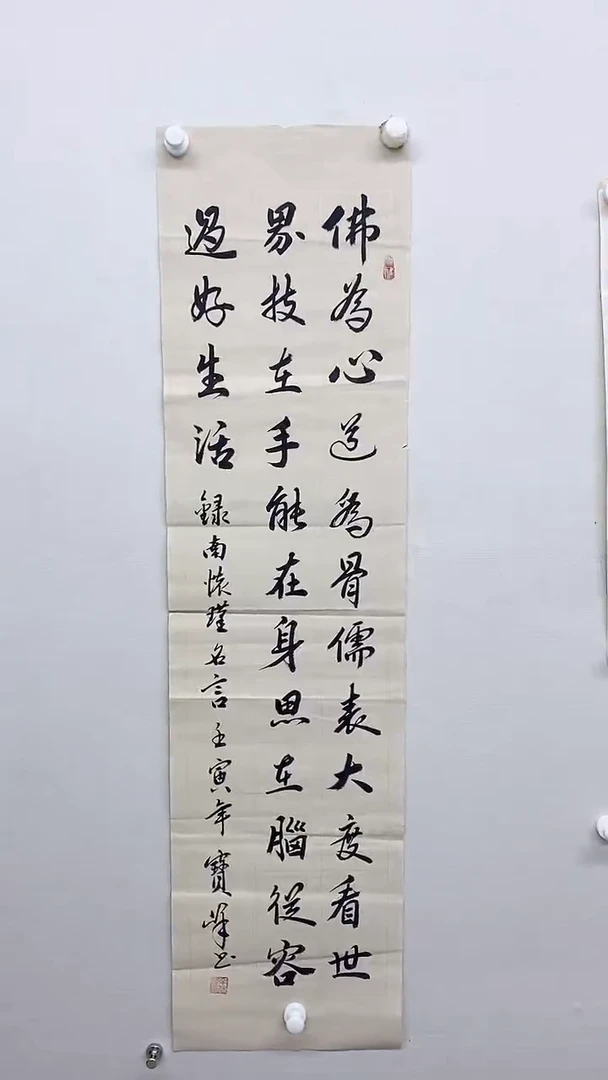 佛為心道為骨儒表大度看世
界技在手能在身思在腦從容
過好生活
錄南懷瑾名言壬寅年寶峰书